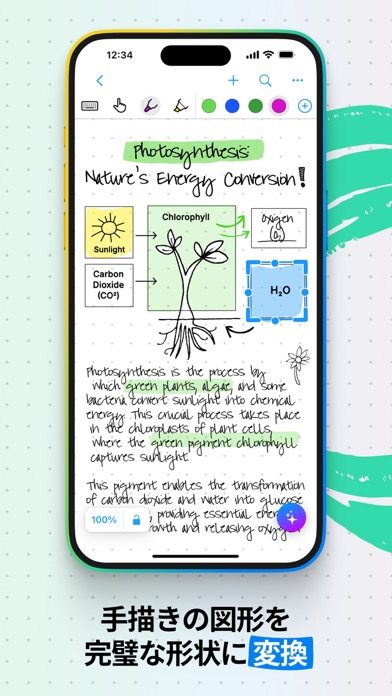 12:34
Photosynthesis:
Nature's Energy Conversion!
Sunlight
Chlorophyll
Oxygen
(O₂)
Carbon
Dioxide
(CO²)
H₂O
Photosynthesis is the process by
which green plants, algae, and some
bacteria convert sunlight into chemical
energy. This crucial process takes place
in the chloroplasts of plant cells,
where the green pigment chlorophyll
captures sunlight.
This pigment enables the transformation
of carbon dioxide and water into glucose
providing essential
growth and releasing oxygen
100%
手描きの図形を
完璧な形状に変換